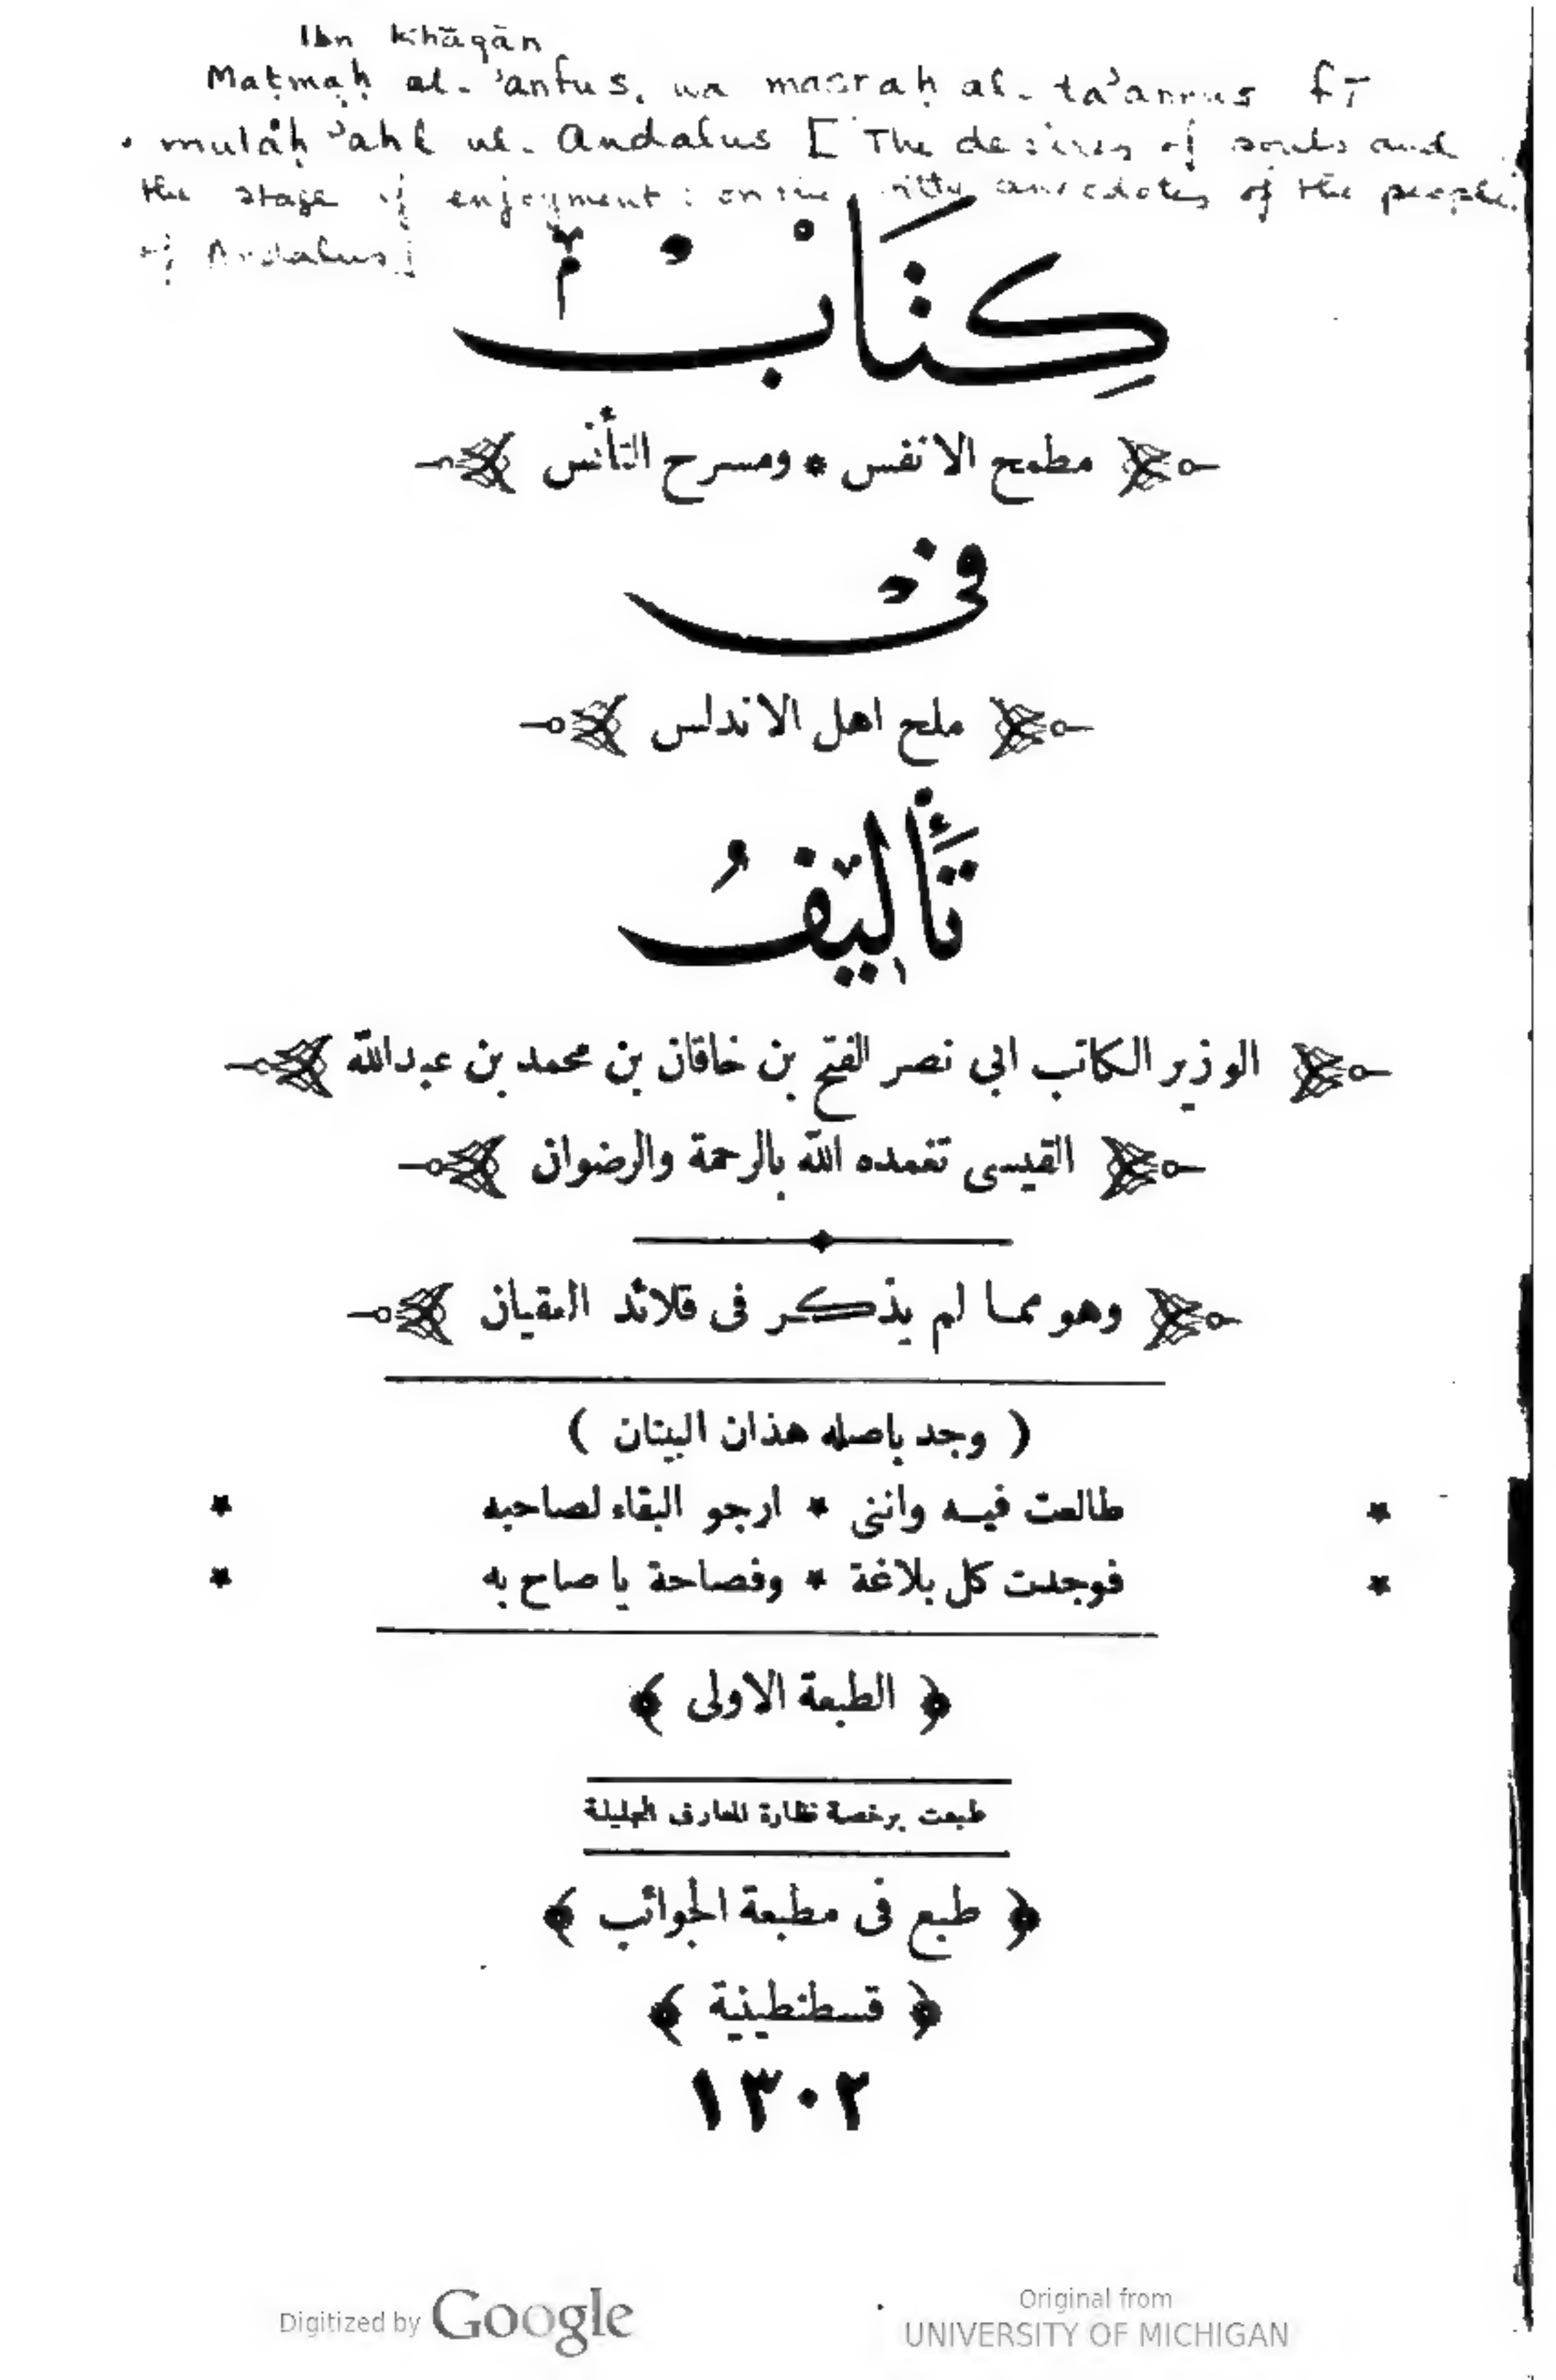 Ibn Khāqān
Maṭmaḥ al-'anfus, wa masraḥ al-ta'annus fī
mulāḥ 'ahl ul-Andalus [The desires of souls and
the stage of enjoyment: on the witty anecdotes of the people
of Andalus]
كِتَابْ
مطمح الانفس * ومسرح التأنس
فى
ملح اهل الاندلس
تَأْلِيْفُ
الوزير الكاتب ابي نصر الفتح بن خاقان بن محمد بن عبدالله
القيسى تغمده الله بالرحمة والرضوان
وهو مما لم يذكر فى قلائد العقيان
( وجد باصله هذان البيتان )
* طالعت فيه واننى * ارجو البقاء لصاحبه *
* فوجدت كل بلاغة * وفصاحة يا صاح به *
﴿ الطبعة الاولى ﴾
طبعت برخصة نظارة المعارف الجليلة
﴿ طبع فى مطبعة الجوائب ﴾
﴿ قسطنطينية ﴾
١٣٠٢
Digitized by Google
Original from
UNIVERSITY OF MICHIGAN